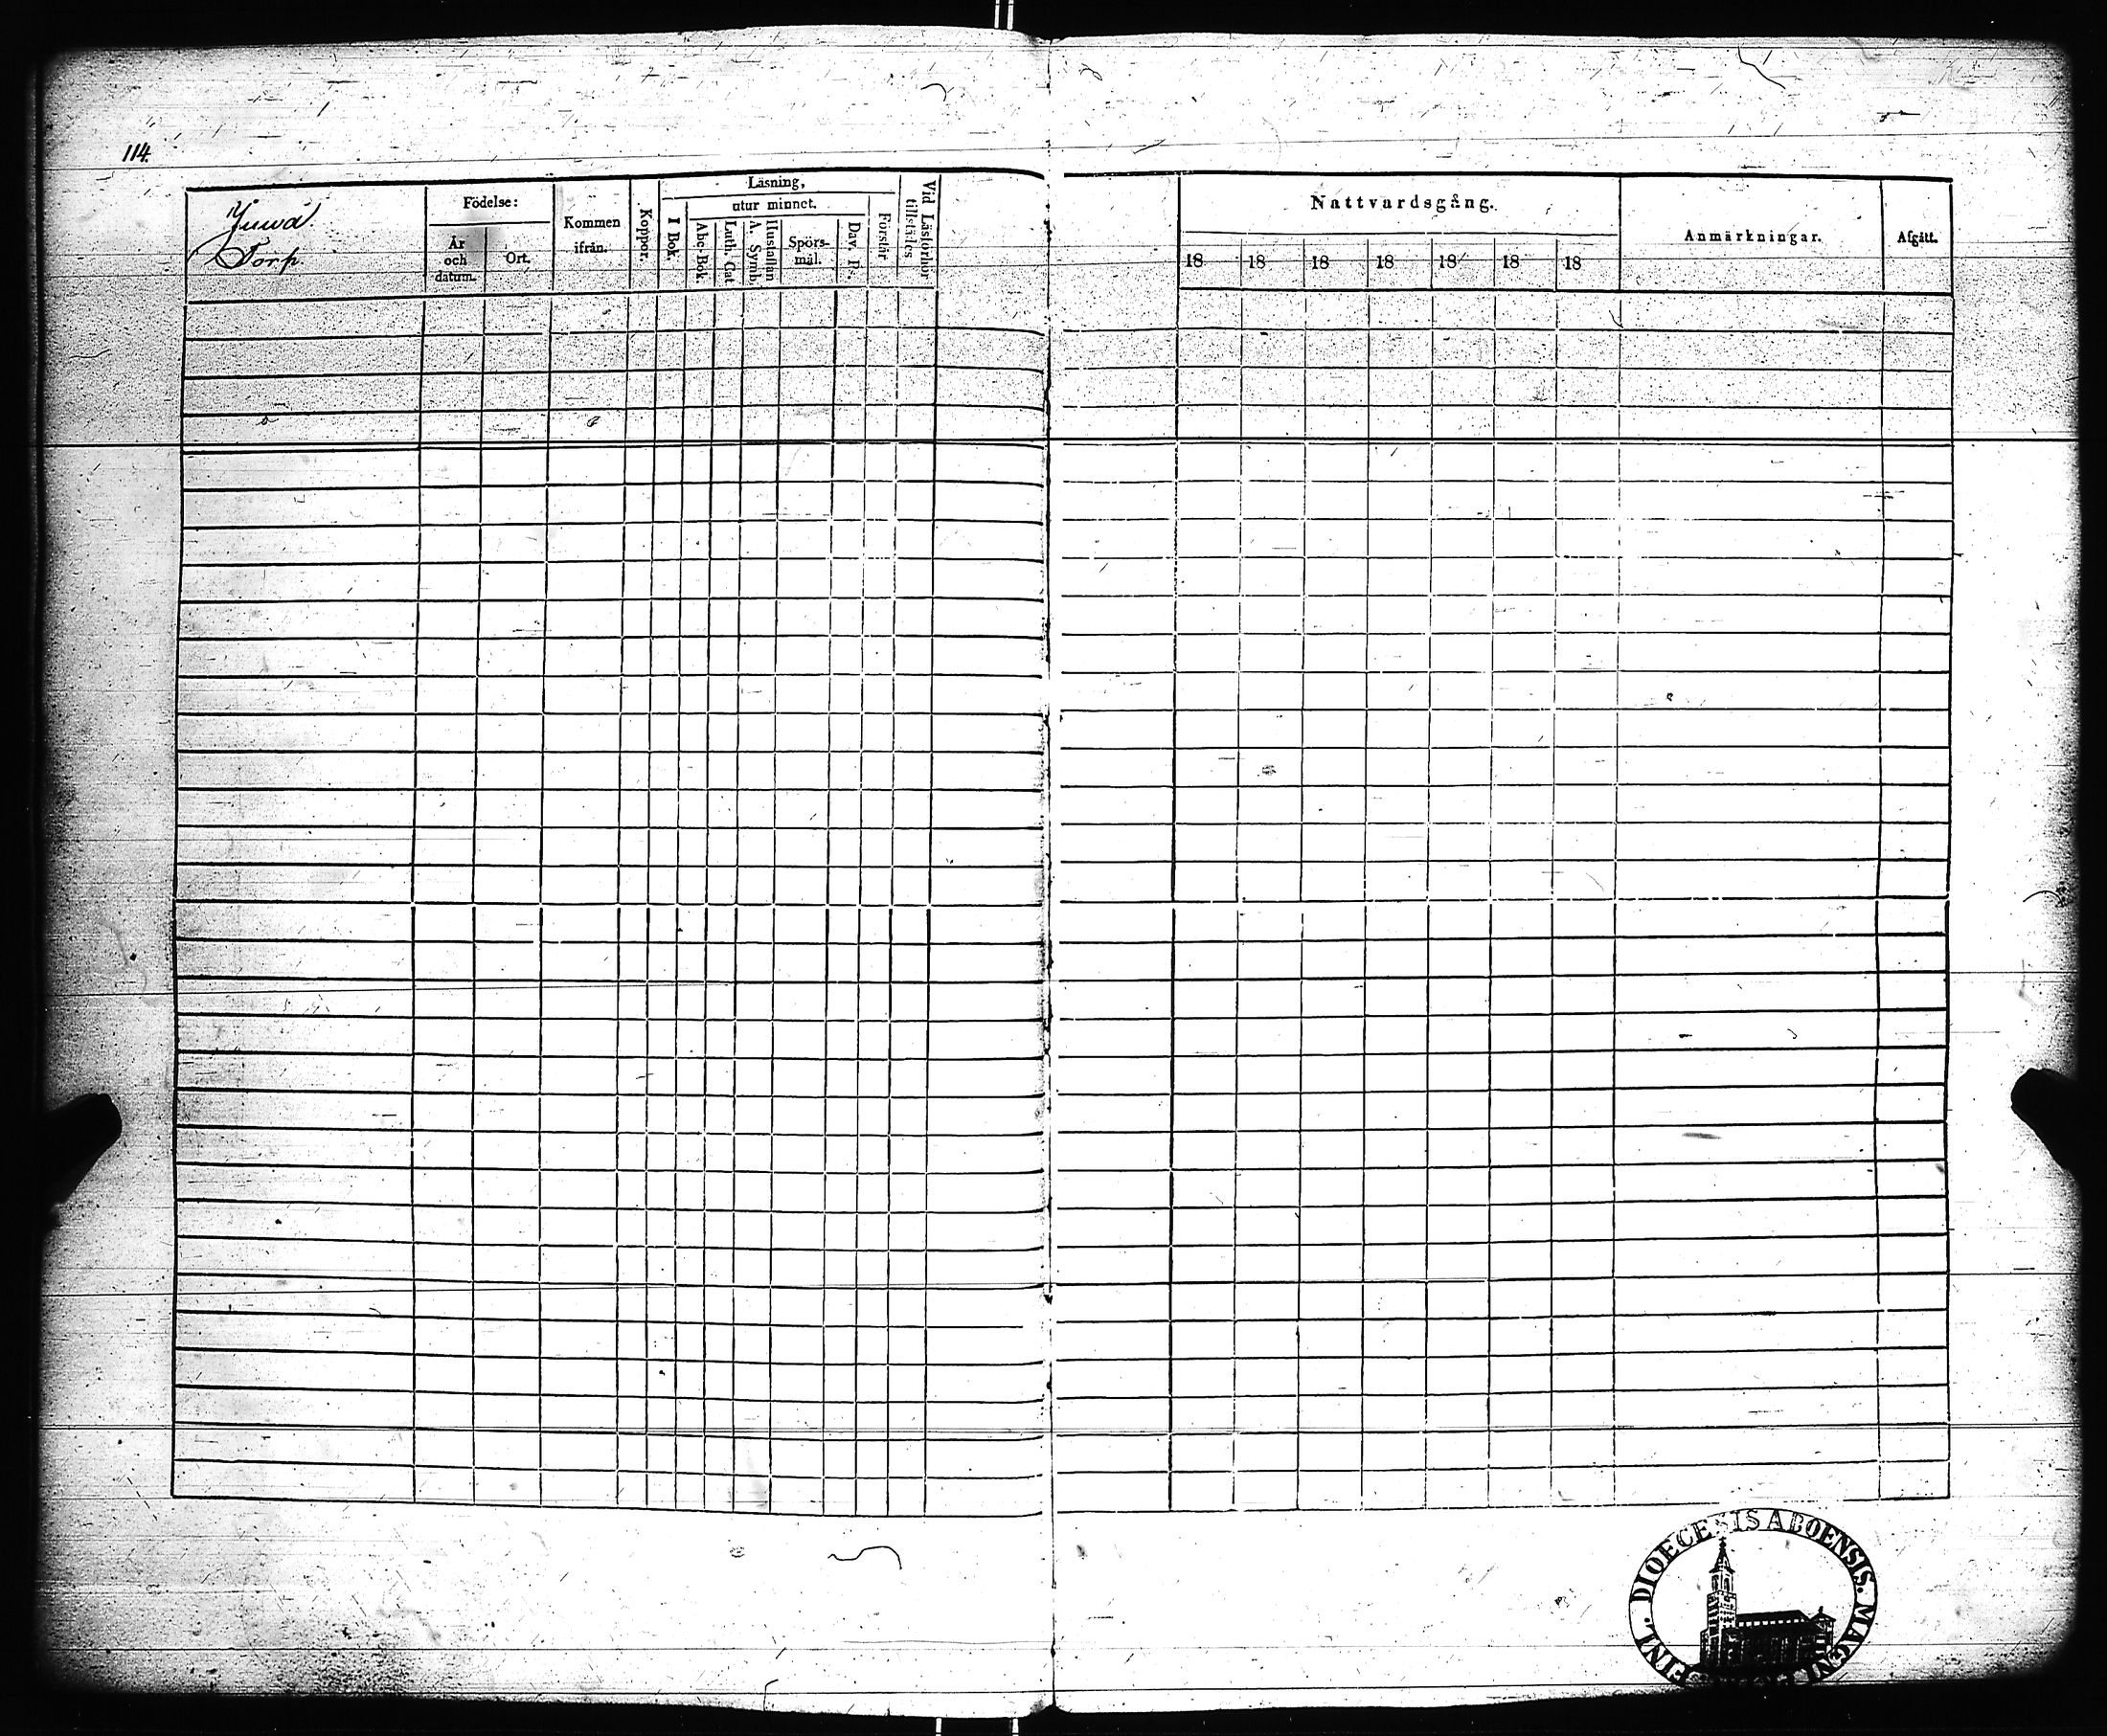 114.
Juwa
Torp
Födelse:
År
och
datum.
Ort.
Kommen
ifrån.
Koppor.
Läsning,
utur minnet.
I Bok
Abc-Bok
Luth. Cat
Hustaflan
A. Symb.
Spörs-
mål.
Dav. Ps.
Förstår
Vid Läsförhör
tillstädes
Nattvardsgång.
18 18 18 18 18 18 18
Anmärkningar.
Afgått.
DIOECESIS ABOENSIS. MAGNI
FINL.